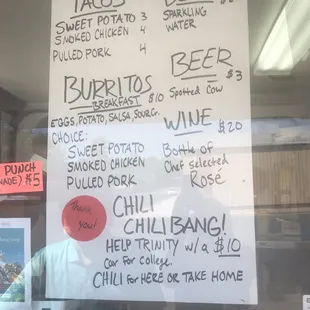 TACOS
SWEET POTATO 3
SMOKED CHICKEN 4
PULLED PORK 4
SPARKLING
WATER
BURRITOS
BREAKFAST $10
EGGS, POTATO, SALSA, SOUR CR.
CHOICE:
SWEET POTATO
SMOKED CHICKEN
PULLED PORK
BEER
$3
Spotted Cow
WINE
$20
Bottle of
Chef selected
Rosé
PUNCH
$5
Thank
you!
CHILI
CHILI BANG!
HELP TRINITY w/ a $10
Car for College.
CHILI for HERE OR TAKE HOME